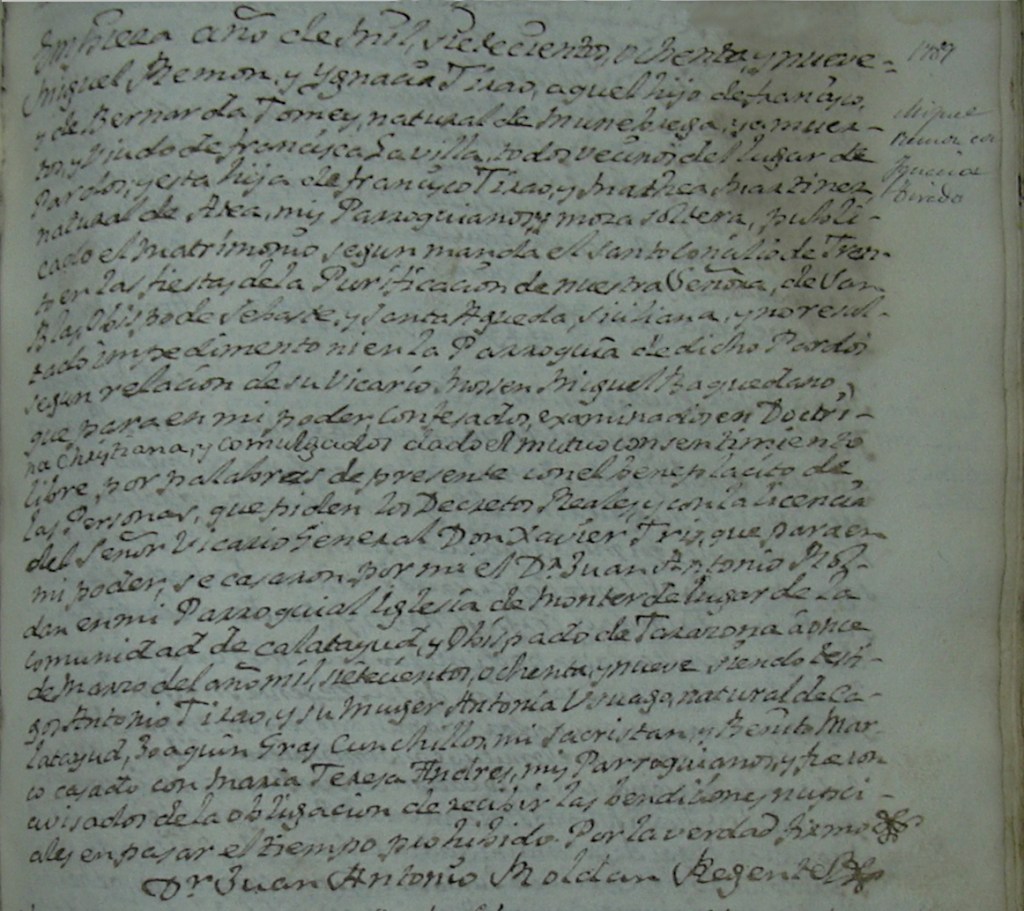 Empieza año de mil, sietecientos, ochenta, y nueve =
Miguel Remon, y Ygnacia Tirao, aquel hijo de francisco,
y de Bernarda Tomey, natural de Munebrega, ya muer-
tos, y Viudo de francisca Lavilla, todos vecinos del lugar de
Pardos; y esta hija de francisco Tirao, y Mathea Martinez
natural de Atea, mis Parroquianos, y moza soltera, publi-
cado el Matrimonio segun manda el Santo Concilio de Tren-
to en las fiestas de la Purificacion de nuestra Señora, de San
Blas Obispo de Sebaste, y Santa Agueda, Siciliana, y no resul-
tado impedimento ni en la Parroquia de dicho Pardos
segun relacion de su Vicario Mossen Miguel Baquedano,
que para en mi poder, Confesados, examinados en Doctri-
na Christiana, y comulgados dado el mutuo consentimiento
libre, por palabras de presente con el beneplacito de
las Personas, que piden los Decretos Reales, y con la licencia
del Señor Vicario General Don Xavier Tris, que para en
mi poder, se casaron por mi el Dr. Juan Antonio Rol-
dan en mi Parroquial Iglesia de Monterde lugar de la
Comunidad de Calatayud, y Obispado de Tarazona a once
de Marzo del año mil, sietecientos, ochenta, y nueve siendo testi-
gos Antonio Tirao, y su Muger Antonia Usuago, natural de Ca-
latayud, Joaquin Gras Cunchillos, mi sacristan, y Benito Mar-
co casado con Maria Teresa Andres, mis Parroquianos, y fueron
avisados de la obligacion de recibir las bendiciones nupci-
ales en pasar el tiempo prohibido. Por la verdad firmo
Dr. Juan Antonio Roldan Regente
1789
Miguel
Remon con
Ygnacia
Tirado